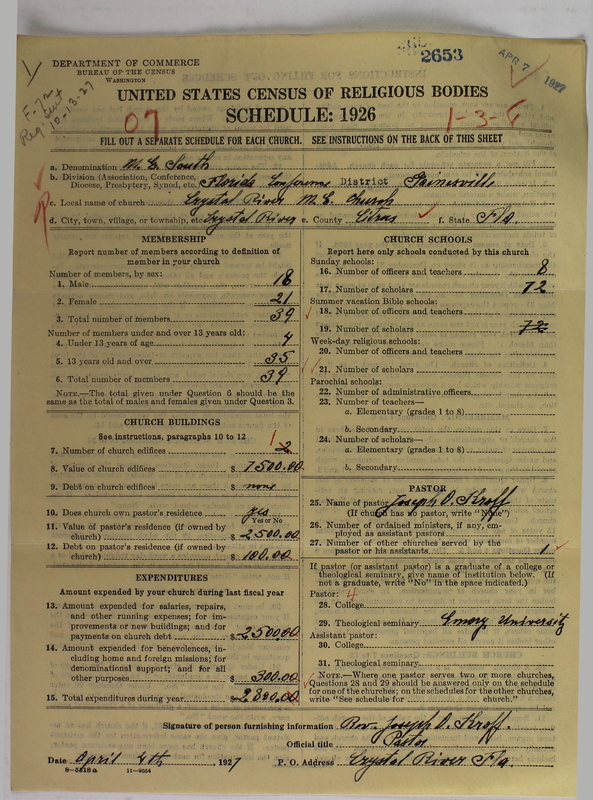 2653
APR 7 1927
DEPARTMENT OF COMMERCE
BUREAU OF THE CENSUS
WASHINGTON
10-13-27
UNITED STATES CENSUS OF RELIGIOUS BODIES
SCHEDULE: 1926
07
1-3-
FILL OUT A SEPARATE SCHEDULE FOR EACH CHURCH. SEE INSTRUCTIONS ON THE BACK OF THIS SHEET
a. Denomination M. E. South
b. Division (Association, Conference,
Diocese, Presbytery, Synod, etc. Florida Conference District Gainesville
c. Local name of church Crystal River M. E. Church
d. City, town, village, or township, etc Crystal River e. County Citrus f. State Fla.
MEMBERSHIP
Report number of members according to definition of
member in your church
Number of members, by sex:
1. Male 18
2. Female 21
3. Total number of members 39
Number of members under and over 13 years old:
4. Under 13 years of age 4
5. 13 years old and over 35
6. Total number of members 39
NOTE.—The total given under Question 6 should be the
same as the total of males and females given under Question 3.
CHURCH BUILDINGS
See instructions, paragraphs 10 to 12
7. Number of church edifices 1 2
8. Value of church edifices $ 7500.00
9. Debt on church edifices $ none
10. Does church own pastor's residence yes
Yes or No
11. Value of pastor's residence (if owned by
church) $ 2500.00
12. Debt on pastor's residence (if owned by
church) $ 100.00
EXPENDITURES
Amount expended by your church during last fiscal year
13. Amount expended for salaries, repairs,
and other running expenses; for im-
provements or new buildings; and for
payments on church debt $ 2500.00
14. Amount expended for benevolences, in-
cluding home and foreign missions; for
denominational support; and for all
other purposes $ 300.00
15. Total expenditures during year $ 2800.00
CHURCH SCHOOLS
Report here only schools conducted by this church
Sunday schools:
16. Number of officers and teachers 8
17. Number of scholars 72
Summer vacation Bible schools:
18. Number of officers and teachers
19. Number of scholars 72
Week-day religious schools:
20. Number of officers and teachers
21. Number of scholars
Parochial schools:
22. Number of administrative officers
23. Number of teachers—
a. Elementary (grades 1 to 8)
b. Secondary
24. Number of scholars—
a. Elementary (grades 1 to 8)
b. Secondary
PASTOR
25. Name of pastor Joseph O.
(If church has no pastor, write "None")
26. Number of ordained ministers, if any, em-
ployed as assistant pastors
27. Number of other churches served by the
pastor or his assistants 1
If pastor (or assistant pastor) is a graduate of a college or
theological seminary, give name of institution below. (If
not a graduate, write "No" in the space indicated.)
Pastor: 4
28. College
29. Theological seminary Emory University
Assistant pastor:
30. College
31. Theological seminary
NOTE.—Where one pastor serves two or more churches,
Questions 28 and 29 should be answered only on the schedule
for one of the churches; on the schedules for the other churches,
write "See schedule for church."
Signature of person furnishing information Rev. Joseph O.
Official title Pastor
Date April 4th, 1927 P. O. Address Crystal River Fla.
8—5518a 11—9054